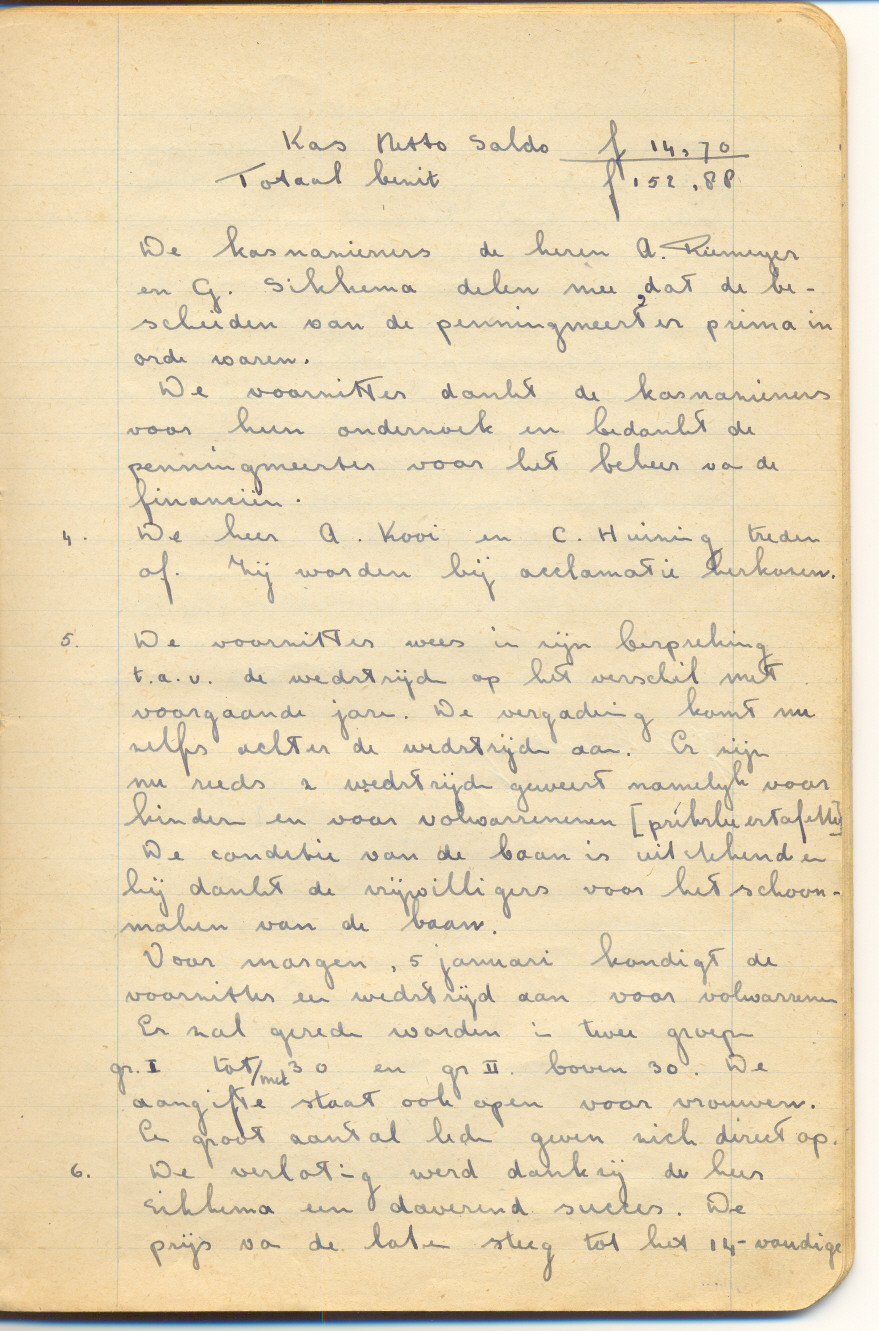 Kas Netto Saldo f 14,70
Totaal bezit f 152,88
De kasnazieners de heren A. Riemeyer
en G. Sikkema delen mee, dat de be-
scheiden van de penningmeester prima in
orde waren.
De voorzitter dankt de kasnazieners
voor hun onderzoek en bedankt de
penningmeester voor het beheer va de
financiën.
4. De heer A. Kooi en C. Huizing treden
af. Zij worden bij acclamatie herkozen.
5. De voorzitter wees in zijn bespreking
t.a.v. de wedstrijd op het verschil met
voorgaande jare. De vergadering komt nu
zelfs achter de wedstrijde aan. Er zijn
nu reeds 2 wedstrijde geweest namelijk voor
kinder en voor volwassenenen [priksleeestafette]
De conditie van de baan is uitstekend en
hij dankt de vrijwilligers voor het schoon-
maken van de baan.
Voor morgen, 5 januari kondigt de
voorzitter een wedstrijd aan voor volwassene
Er zal gerede worden in twee groepe
gr. I tot/met 30 en gr II. boven 30. De
aangifte staat ook open voor vrouwen.
En groot aantal lede geven zich direct op.
6. De verloting werd dankzij de heer
Sikkema een daverend succes. De
prijs va de lote steeg tot het 14-voudige